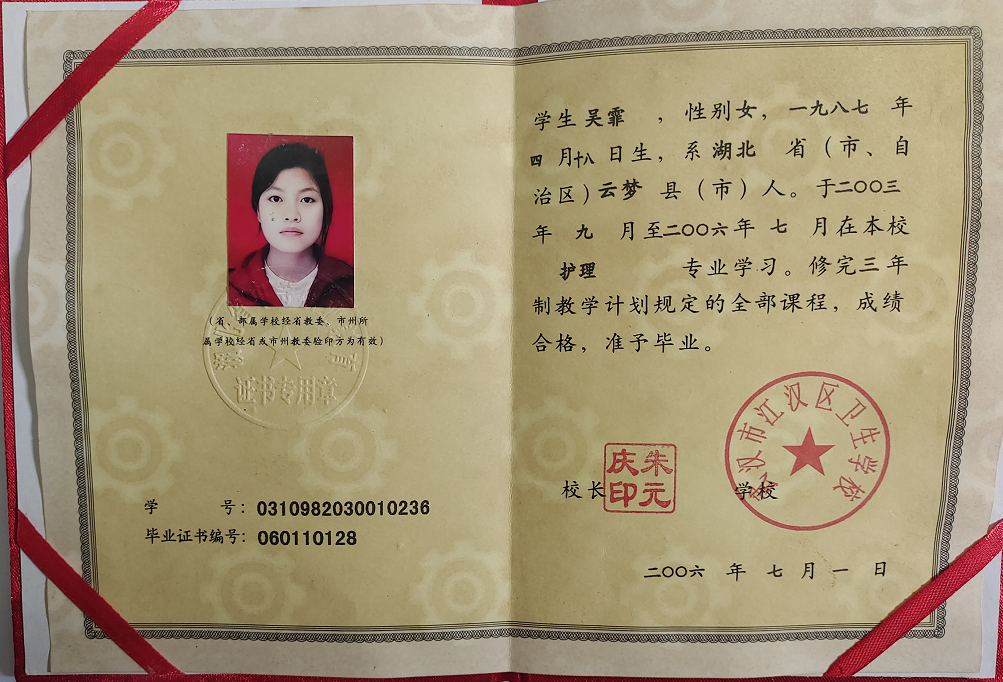 （省、部属学校经省教委、市州所
属学校经省或市州教委验印方为有效）
证书专用章
学 号：0310982030010236
毕业证书编号：060110128
学生 吴霏 ，性别女，一九八七 年
四 月十八日生，系 湖北 省（市、自
治区）云梦 县（市）人。于二〇〇三
年 九 月至二〇〇六年 七 月在本校
护理 专业学习。修完三年
制教学计划规定的全部课程，成绩
合格，准予毕业。
武汉市江汉区卫生学校
校长
朱元庆印
学校
二〇〇六 年 七 月 一 日